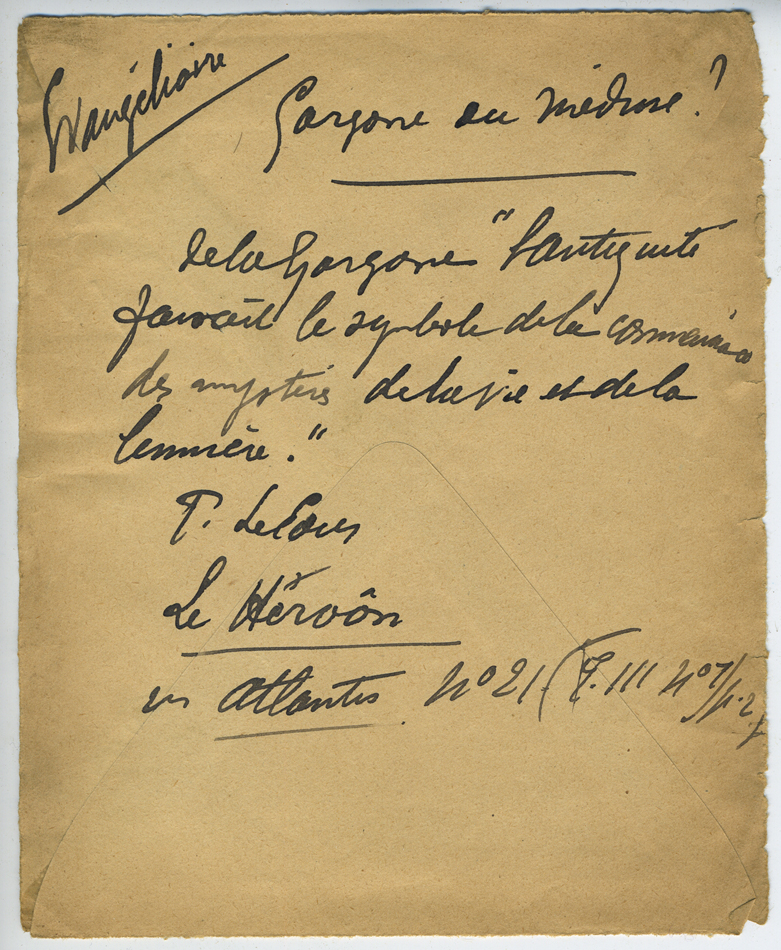 Evangéliaire
Gorgone ou Méduse ?
De la Gorgone "l'antiquité
faisait le symbole de la connaissance
des mystères de la vie et de la
lumière."
P. Le Cour
Le Héroôn
in Atlantis. N° 21 (T. III N° 7) p. 2